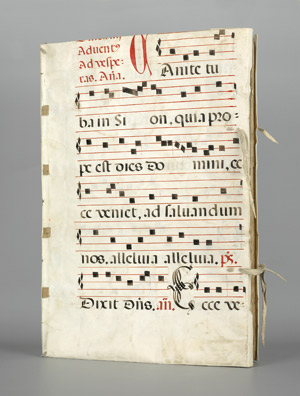 Adventꝰ
Ad vespe-
tas. Aña. Canite tu
ba in Si on, quia pro-
pe est dies Do mini, ec
ce veniet, ad saluandum
nos, alleluia alleluia. ps.
Dixit Dñs. añ. Ecce ve-